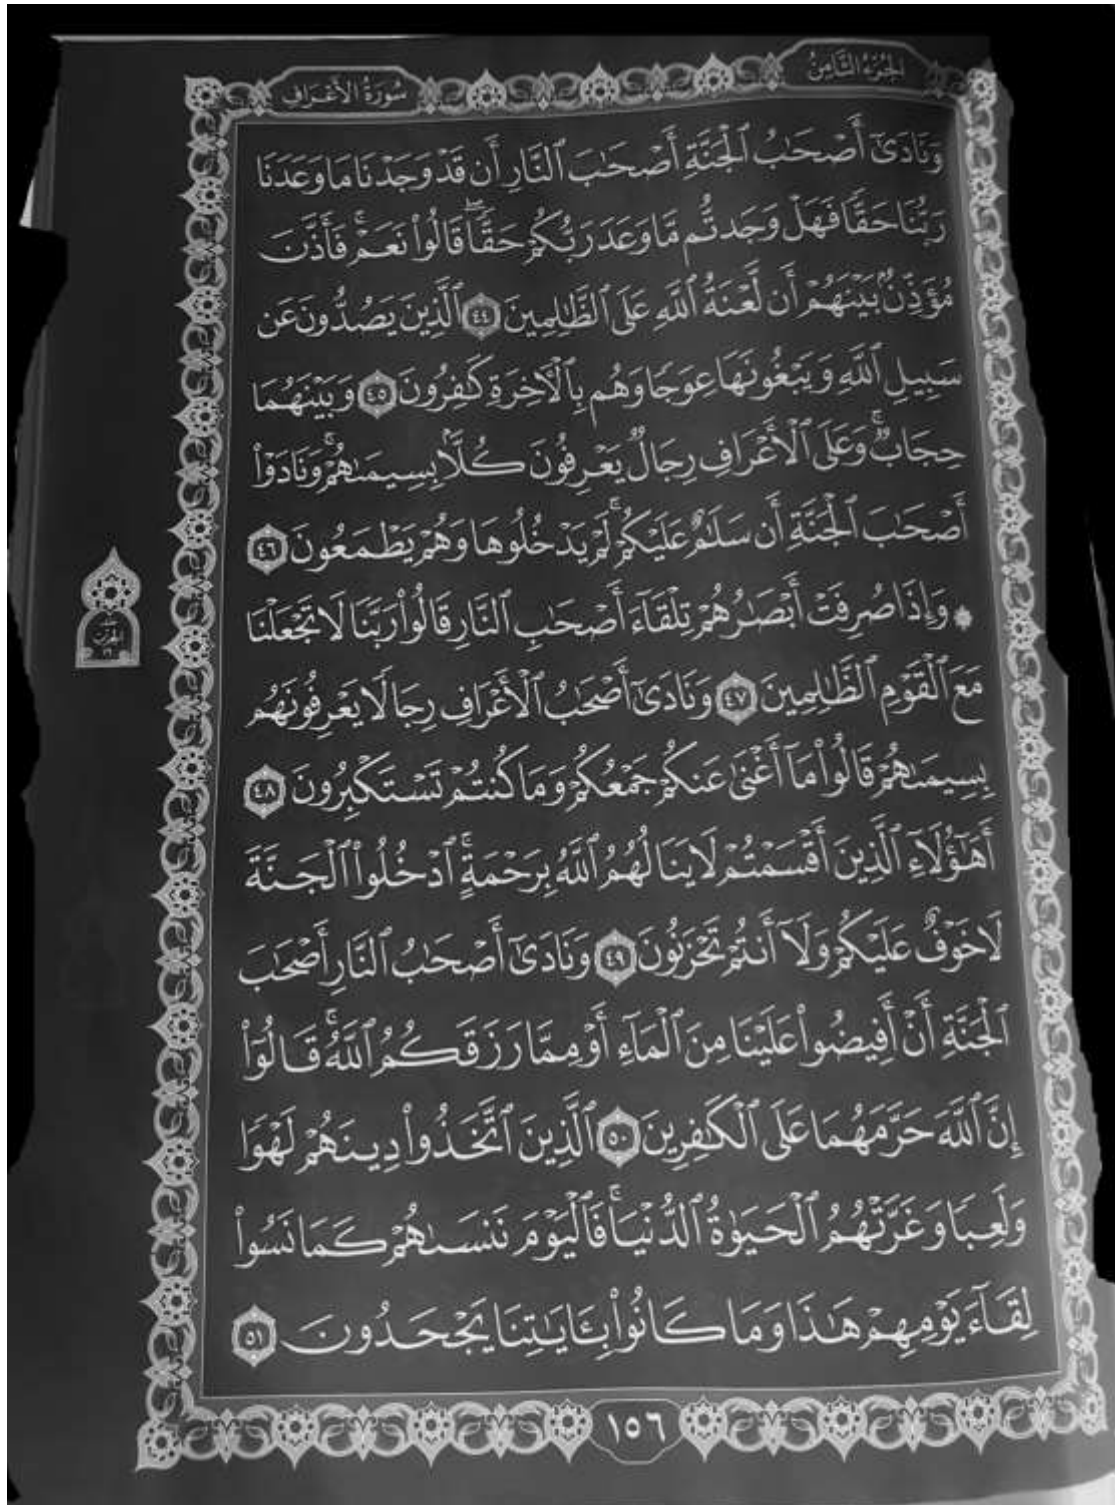 الجزء الثامن
سورة الأعراف
وَنَادَىٰٓ أَصْحَٰبُ ٱلْجَنَّةِ أَصْحَٰبَ ٱلنَّارِ أَن قَدْ وَجَدْنَا مَا وَعَدَنَا
رَبُّنَا حَقًّا فَهَلْ وَجَدتُّم مَّا وَعَدَ رَبُّكُمْ حَقًّا ۖ قَالُوا۟ نَعَمْ ۚ فَأَذَّنَ
مُؤَذِّنٌۢ بَيْنَهُمْ أَن لَّعْنَةُ ٱللَّهِ عَلَى ٱلظَّٰلِمِينَ ٤٤ ٱلَّذِينَ يَصُدُّونَ عَن
سَبِيلِ ٱللَّهِ وَيَبْغُونَهَا عِوَجًا وَهُم بِٱلْءَاخِرَةِ كَٰفِرُونَ ٤٥ وَبَيْنَهُمَا
حِجَابٌ ۚ وَعَلَى ٱلْأَعْرَافِ رِجَالٌ يَعْرِفُونَ كُلًّۢا بِسِيمَىٰهُمْ ۚ وَنَادَوْا۟
أَصْحَٰبَ ٱلْجَنَّةِ أَن سَلَٰمٌ عَلَيْكُمْ ۚ لَمْ يَدْخُلُوهَا وَهُمْ يَطْمَعُونَ ٤٦
۞ وَإِذَا صُرِفَتْ أَبْصَٰرُهُمْ تِلْقَآءَ أَصْحَٰبِ ٱلنَّارِ قَالُوا۟ رَبَّنَا لَا تَجْعَلْنَا
مَعَ ٱلْقَوْمِ ٱلظَّٰلِمِينَ ٤٧ وَنَادَىٰٓ أَصْحَٰبُ ٱلْأَعْرَافِ رِجَالًا يَعْرِفُونَهُم
بِسِيمَىٰهُمْ قَالُوا۟ مَآ أَغْنَىٰ عَنكُمْ جَمْعُكُمْ وَمَا كُنتُمْ تَسْتَكْبِرُونَ ٤٨
أَهَٰٓؤُلَآءِ ٱلَّذِينَ أَقْسَمْتُمْ لَا يَنَالُهُمُ ٱللَّهُ بِرَحْمَةٍ ۚ ٱدْخُلُوا۟ ٱلْجَنَّةَ
لَا خَوْفٌ عَلَيْكُمْ وَلَآ أَنتُمْ تَحْزَنُونَ ٤٩ وَنَادَىٰٓ أَصْحَٰبُ ٱلنَّارِ أَصْحَٰبَ
ٱلْجَنَّةِ أَنْ أَفِيضُوا۟ عَلَيْنَا مِنَ ٱلْمَآءِ أَوْ مِمَّا رَزَقَكُمُ ٱللَّهُ ۚ قَالُوٓا۟
إِنَّ ٱللَّهَ حَرَّمَهُمَا عَلَى ٱلْكَٰفِرِينَ ٥٠ ٱلَّذِينَ ٱتَّخَذُوا۟ دِينَهُمْ لَهْوًا
وَلَعِبًا وَغَرَّتْهُمُ ٱلْحَيَوٰةُ ٱلدُّنْيَا ۚ فَٱلْيَوْمَ نَنسَىٰهُمْ كَمَا نَسُوا۟
لِقَآءَ يَوْمِهِمْ هَٰذَا وَمَا كَانُوا۟ بِـَٔايَٰتِنَا يَجْحَدُونَ ٥١
١٥٦